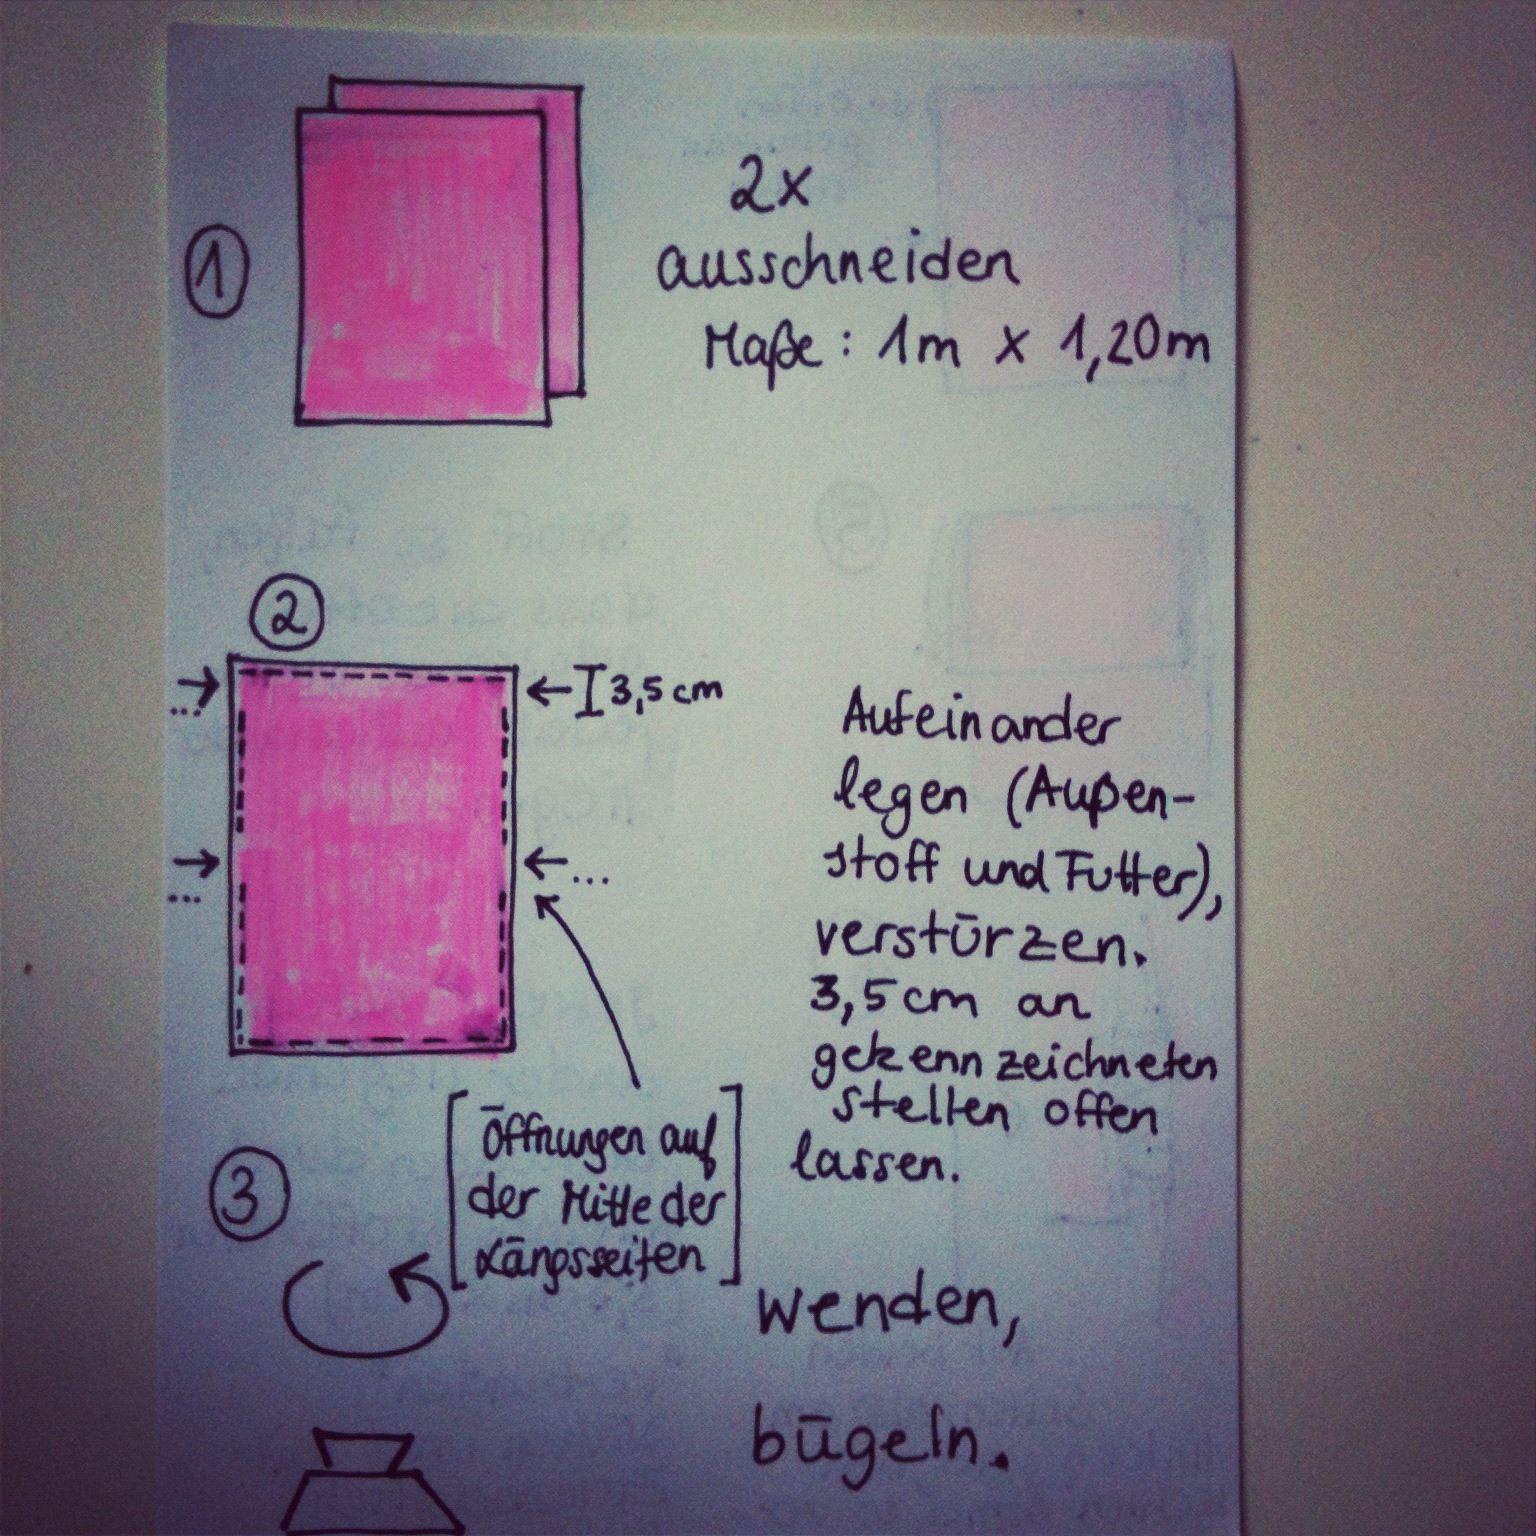 1
2x
ausschneiden
Maße: 1m x 1,20m
2
I 3,5 cm
...
...
...
Aufeinander
legen (Außen-
stoff und Futter),
verstürzen.
3,5 cm an
gekennzeichneten
stellen offen
lassen.
[Öffnungen auf
der Mitte der
Längsseiten]
3
wenden,
bügeln.